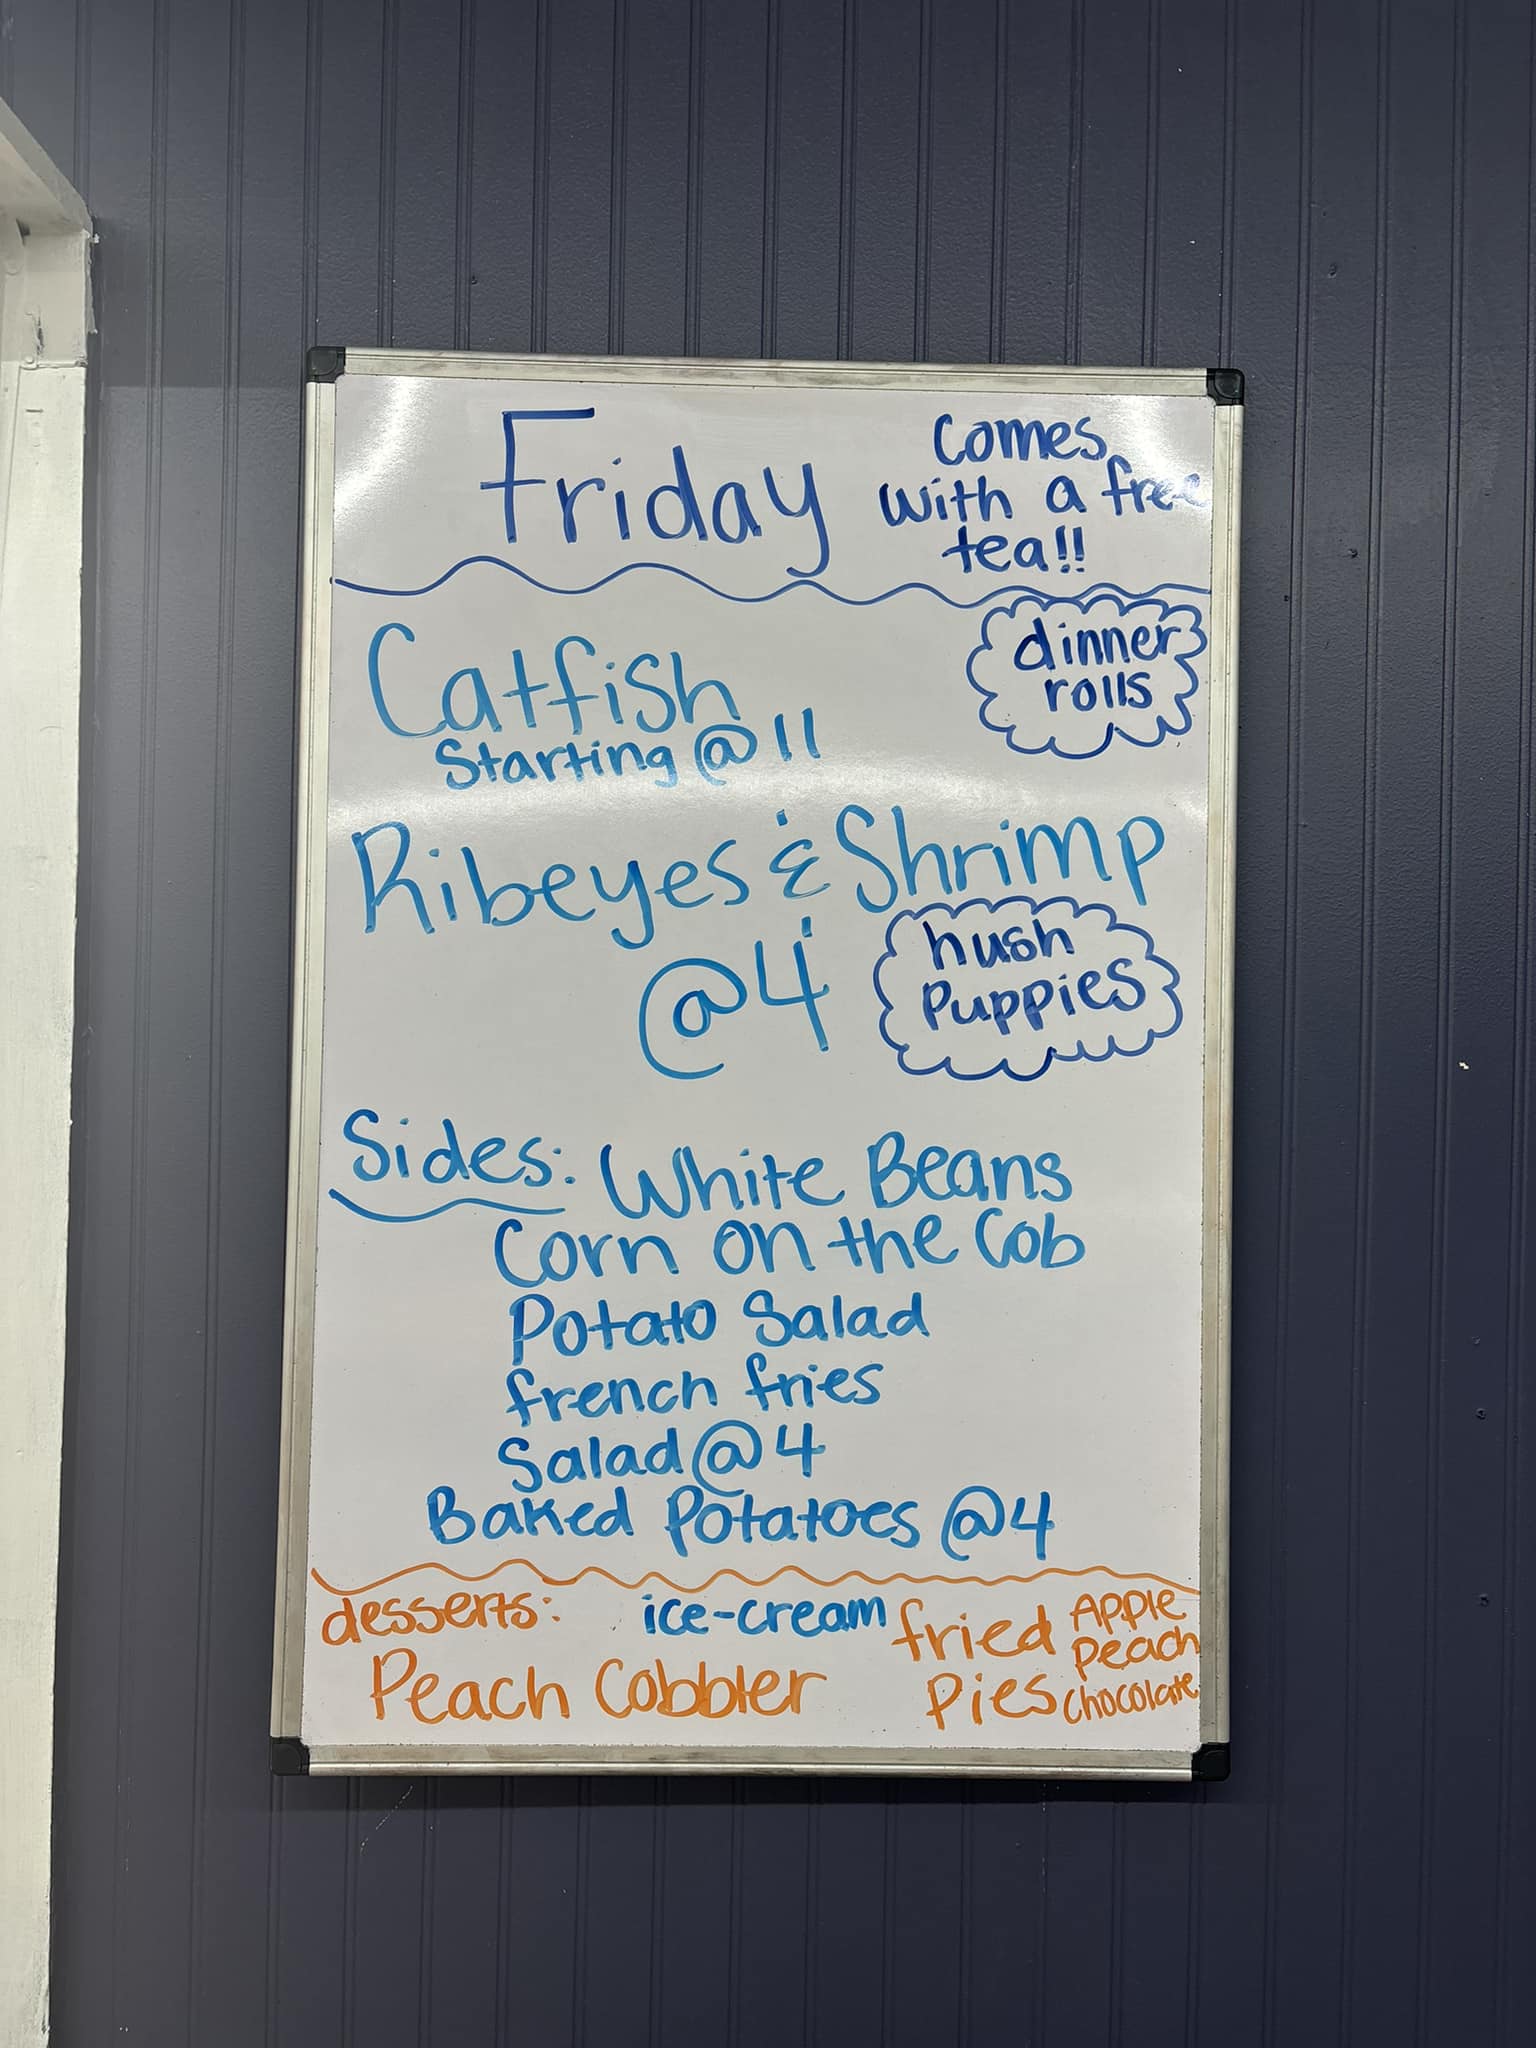 Friday
Comes
with a free
tea!!
Catfish
Starting @ 11
dinner
rolls
Ribeyes & Shrimp
@4
hush
Puppies
Sides: White Beans
Corn on the Cob
Potato Salad
french fries
Salad @ 4
Baked Potatoes @4
desserts:
ice-cream
Peach Cobbler
fried
Pies
Apple
Peach
chocolate